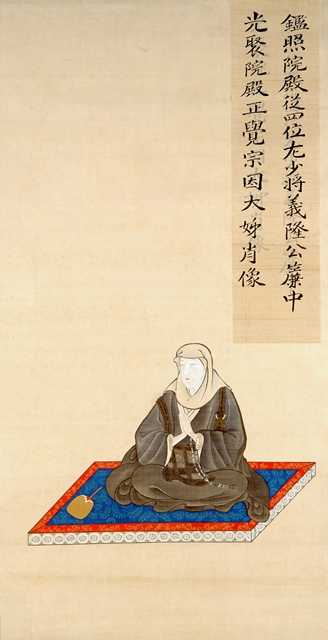 鑑照院殿従四位左少将義隆公簾中
光聚院殿正覺宗因大姉肖像